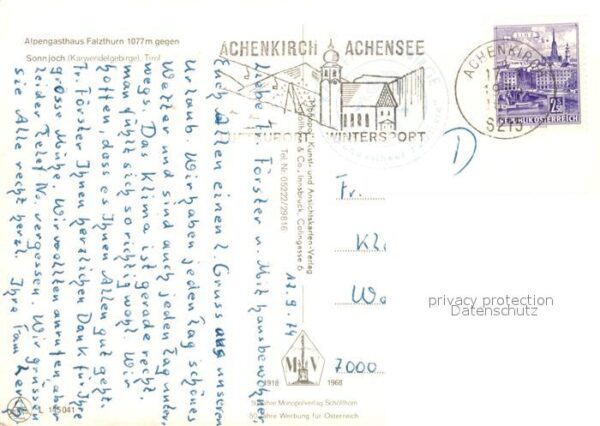 Alpengasthaus Falzthurn 1077m gegen
Sonnjoch (Karwendelgebirge), Tirol
ACHENKIRCH ACHENSEE
WINTERSPORT
ACHENKIRCH
6215
REPUBLIK ÖSTERREICH
D
17.9.74
Liebe Fr. Förster u. Mithausbewohner
Euch Allen einen l. Gruss aus unseren
Urlaub. Wir haben jeden Tag schönes
Wetter und sind auch jeden Tag unter
wegs. Das Klima ist gerade recht.
man fühlt sich so richtig wohl. Wir
hoffen, dass es Ihnen Allen gut geht.
Fr. Förster Ihnen herzlichen Dank für Ihre
grosse Mühe. Wir wollten anrufen, aber
leider Telef No. vergessen. Wir grüssen
sie Alle recht herzl. Ihre Fam.
Kunst- und Ansichtskarten-Verlag
Schöllhorn & Co., Innsbruck, Colingasse 6
Tel. Nr. 05222/29816
Fr.
Kl
Wo
7000
privacy protection
Datenschutz
M V
1918 1968
50 Jahre Monopolverlag Schöllhorn
50 Jahre Werbung für Österreich